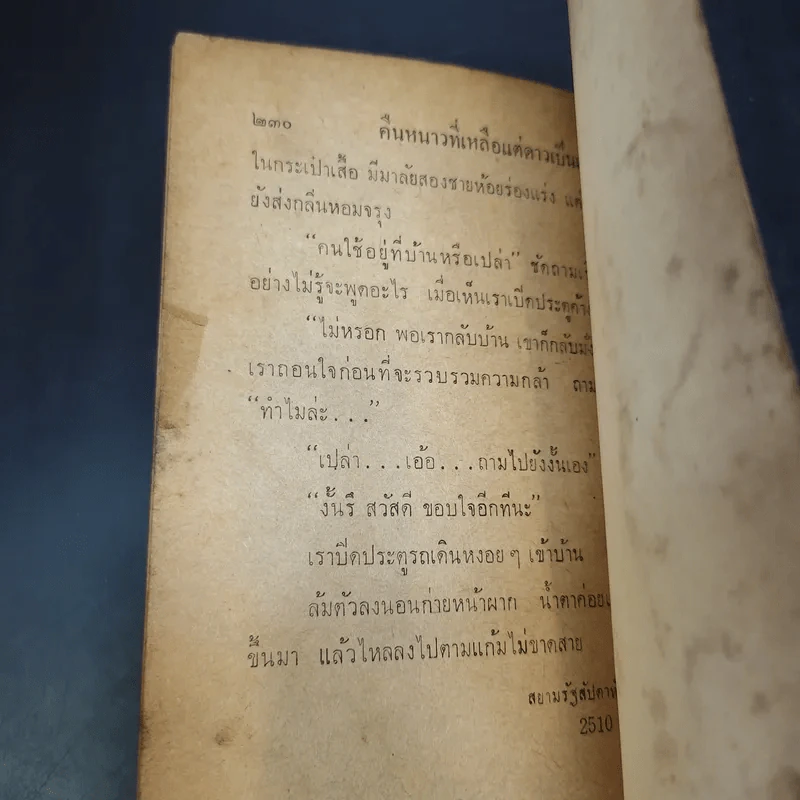 ๒๓๐ คืนหนาวที่เหลือแต่ดาวเป็น
ในกระเป๋าเสื้อ มีมาลัยสองชายห้อยร่องแร่ง
ยังส่งกลิ่นหอมจรุง
“คนใช้อยู่ที่บ้านหรือเปล่า” ชัดถาม
อย่างไม่รู้จะพูดอะไร เมื่อเห็นเราเปิดประตู
“ไม่หรอก พอเรากลับบ้าน เขาก็กลับ
เราถอนใจก่อนที่จะรวบรวมความกล้า ถาม
“ทำไมล่ะ...”
“เปล่า...เอ้อ...ถามไปยังงั้นเอง”
“งั้นรึ สวัสดี ขอบใจอีกทีนะ”
เราปิดประตูรถเดินหงอยๆ เข้าบ้าน
ล้มตัวลงนอนก่ายหน้าผาก น้ำตาค่อย
ขึ้นมา แล้วไหลลงไปตามแก้มไม่ขาดสาย
สยามรัฐสัปดาห์
2510